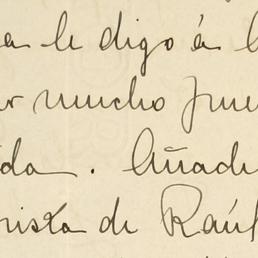 a le digo á
mucho
da. Añade
rista de Raúl